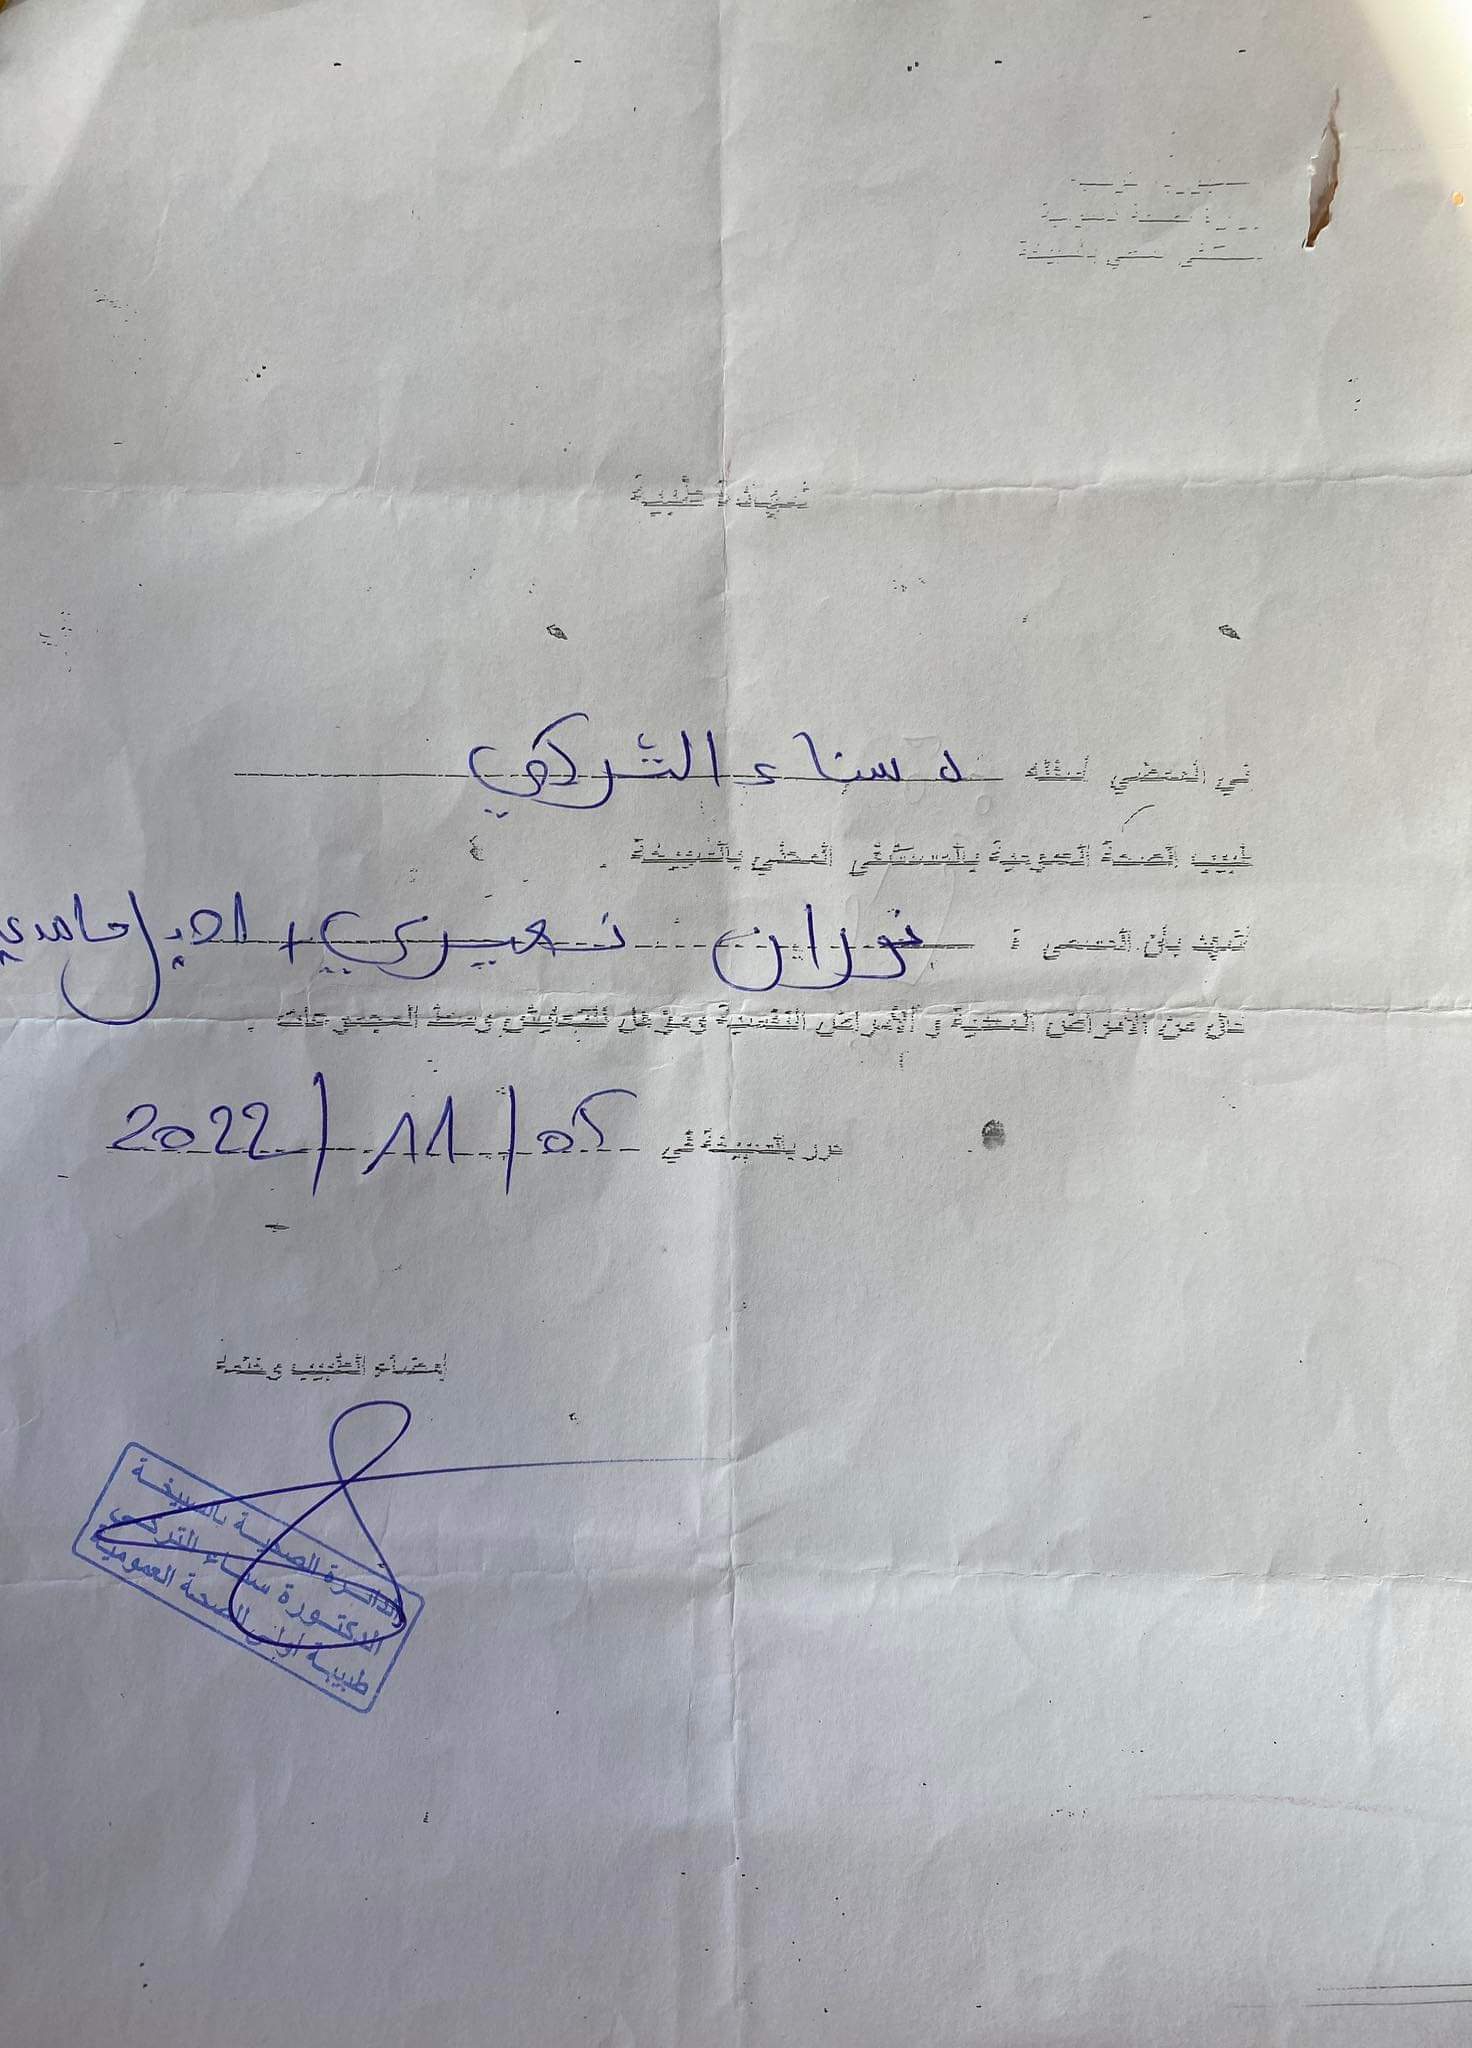 شهادة طبية
إني الممضي أسفله د سناء التركي
طبيب الصحة العمومية بالمستشفى المحلي بالسبيخة
أشهد بأن المسمى : نوران نصيري /
خالي من الأمراض المعدية و الأمراض النفسية ومؤهل للتعايش وسط المجموعات .
حرر بالسبيخة في 05 / 11 / 2022
إمضاء الطبيب وختمه
الدائرة الصحية بالسبيخة
الدكتورة سناء التركي
طبيبة أولى للصحة العمومية